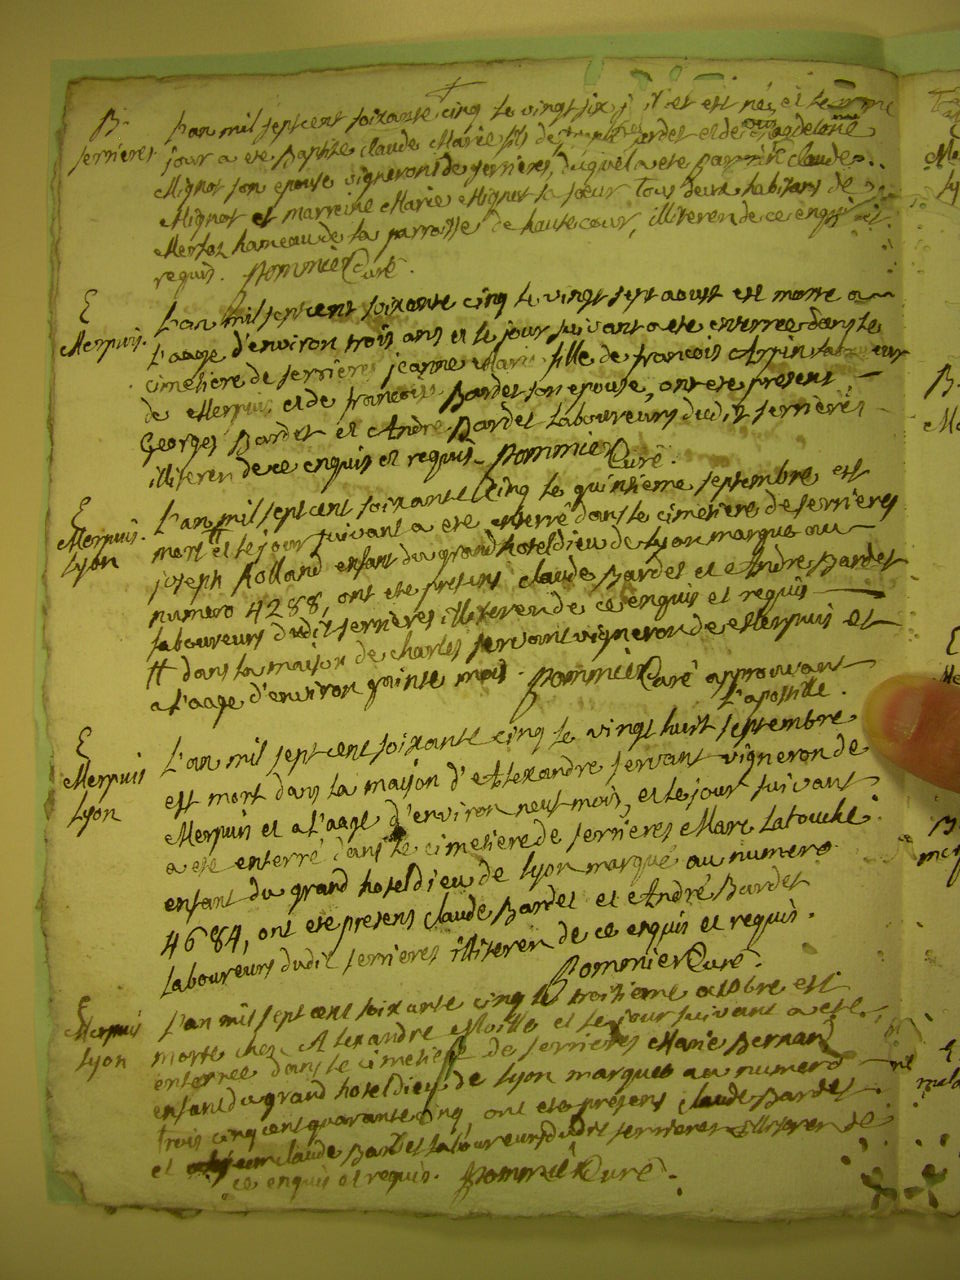 B.
serrieres
L'an mil sept cent soixante cinq le vingt six est né, et le
jour a ete Baptisé claude Marie fils de Bardet et de Magdelene
Mignot son epouse vignerons de serrieres, duquel a ete parrein claude
Mignot et marreine Marie Mignot sa soeur Tous deux habitans de
hameau de la parroisse de hautecour, illiteren de ce enquis et
requis. Pommier Curé.
E
Merpuis.
L'an mil sept cent soixante cinq le vingt sept aoust est morte a
l'aage d'environ trois ans et le jour suivant a ete enterrée dans le
cimetiere de serrieres jeanne Marie fille de francois Arpin laboureur
de Merpuis et de francoise Bardet son epouse, ont ete present
Georges Bardet et André Bardet Laboureurs dudit serrieres
illiteren de ce enquis et requis. Pommier Curé.
E
Merpuis.
Lyon
L'an mil sept cent soixante Cinq le quinsieme septembre est
mort # et le jour suivant a ete enterré dans le cimetiere de serrieres
joseph Rolland enfant du grand hoteldieu de Lyon marqué au
numero 4288, ont ete presens claude Bardet et Andre Bardet
laboureurs dudit serrieres illiteren de ce enquis et requis
# dans la maison de charles servant vigneron de Merpuis et
a l'aage d'environ quinse mois. Pommier Curé approuvant
l'apostille.
E
Merpuis
Lyon
L'an mil sept cent soixante cinq le vingt huit septembre
est mort dans la maison d'Alexandre servant vigneron de
Merpuis et a l'aage d'environ neuf mois, et le jour suivant
a ete enterré dans le cimetiere de serrieres Marc Latouche
enfant du grand hoteldieu de Lyon marqué au numero
4684, ont ete presens claude Bardet et André Bardet
laboureurs dudit serrieres illiteren de ce enquis et requis.
Pommier Curé.
E
Merpuis
Lyon
L'an mil sept cent soixante cinq le troisieme octobre est
morte chez Alexandre et le jour suivant a ete
enterrée dans le cimetiere de serrieres Marie Bernard
enfant du grand hoteldieu de Lyon marqueé au numero
trois cinq cent quarante cinq ont ete presens claude Bardet
et claude Bardet laboureurs dudit serrieres illiteren de
ce enquis et requis. Pommier Curé.